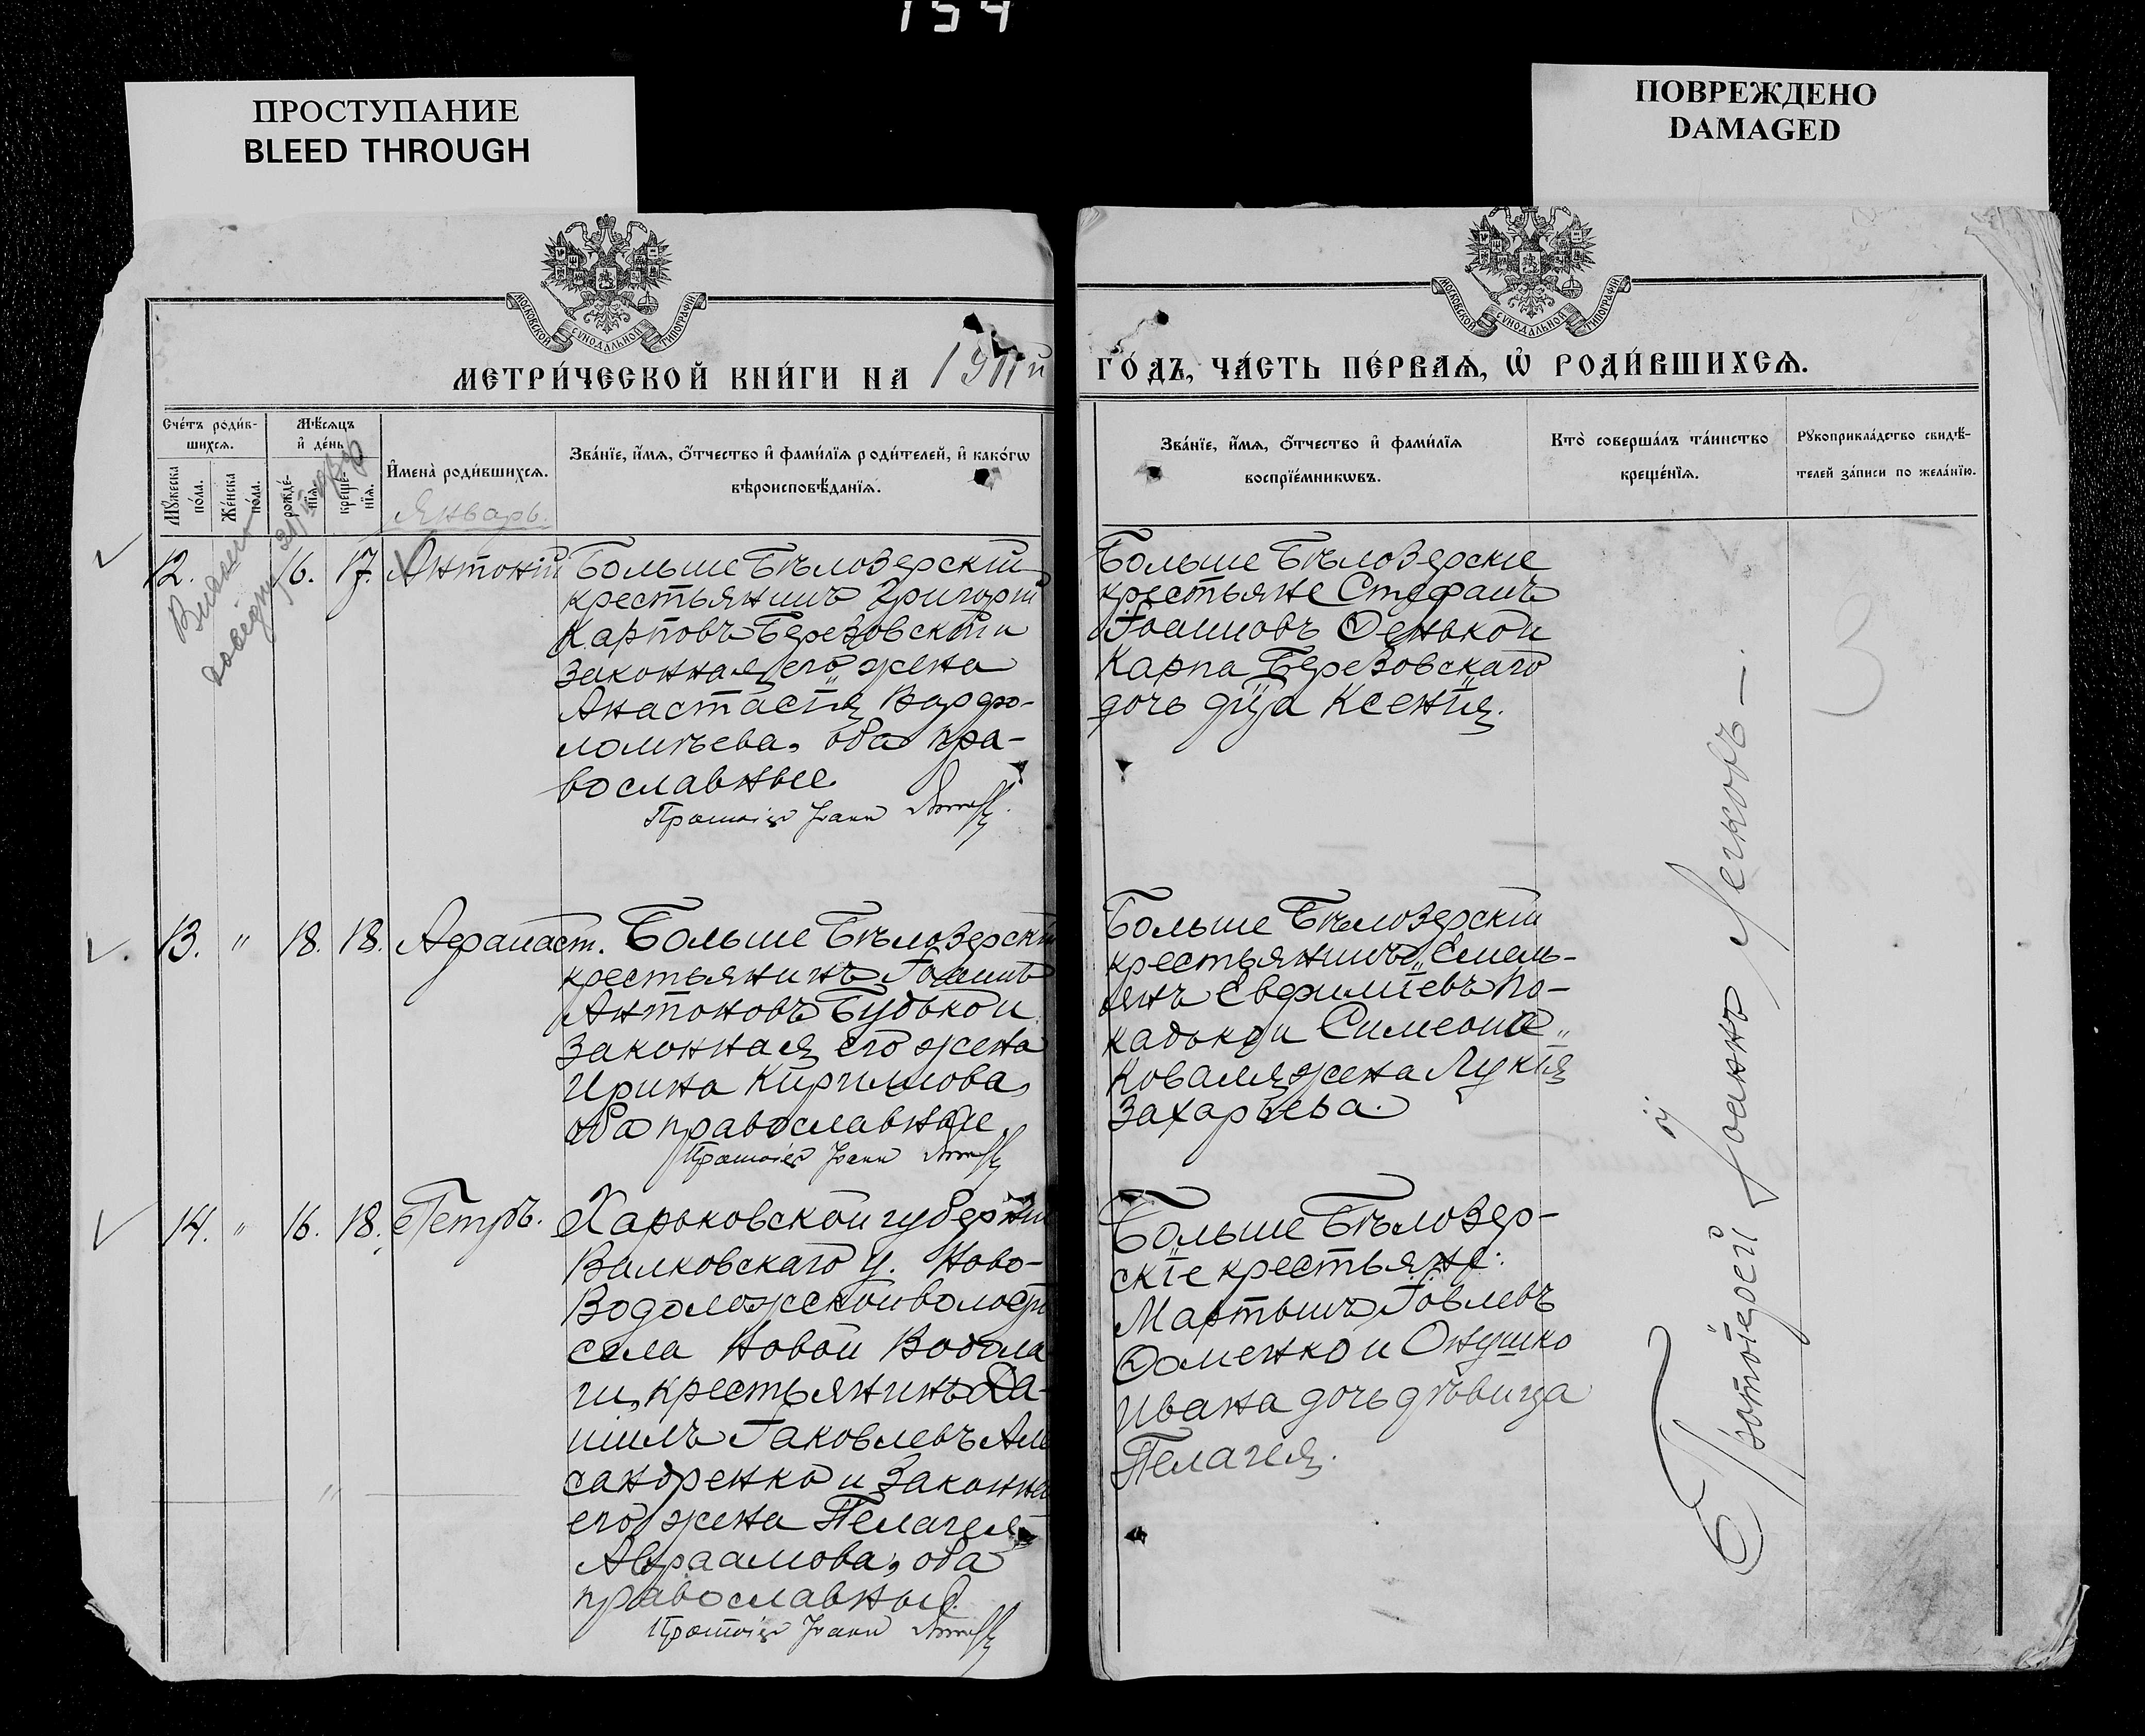 154
ПРОСТУПАНИЕ
BLEED THROUGH
ПОВРЕЖДЕНО
DAMAGED
МОСКОВСКОЙ СУНОДАЛЬНОЙ ТИПОГРАФІИ
МОСКОВСКОЙ СУНОДАЛЬНОЙ ТИПОГРАФІИ
МЕТРИ́ЧЕСКОЙ КНИ́ГИ НА 1911й
ГО́ДЪ, ЧА́СТЬ ПЕ́РВАѦ, Ѡ҆ РОДИ́ВШИХСѦ.
Сче́тъ роди́в-
шихсѧ.
Мꙋ́жеска
по́ла.
Же́нска
по́ла.
Мѣ́сѧцъ
и҆ де́нь
рожде́-
нїѧ.
креще́-
нїѧ.
И҆мена̀ роди́вшихсѧ.
Январь.
Зва́нїе, и҆́мѧ, ѻ҆́тчество и҆ фами́лїѧ роди́телей, и҆ како́гѡ
вѣроисповѣ́данїѧ.
Зва́нїе, и҆́мѧ, ѻ҆́тчество и҆ фами́лїѧ
воспрїе́мникѡвъ.
Кто̀ соверша́лъ та́инство
креще́нїѧ.
Рꙋкоприкла́дство свидѣ́-
телей за́писи по жела́нїю.
12. 16. 17. Антоній
Больше Бѣлозерскій
крестьянинъ Григорій
Карповъ Березовскій и
законная его жена
Анастасія Варфо-
ломѣева, оба пра-
вославные.
Протоіер Іоанн
Больше Бѣлозерскіе
крестьяне Стефанъ
Іоанновъ Фенько и
Карпа Березовскаго
дочь д̈ца Ксенія.
3
13. " 18. 18. Афанаст.
Больше Бѣлозерскій
крестьянинъ Іоаннъ
Антоновъ Будько и
законная его жена
Ирина Кириллова,
оба православные.
Протоіер Іоанн
Больше Бѣлозерскій
крестьянинъ Емель-
янъ Евфиміевъ По-
кадько и Симеона
Коваля жена Лукія
Захарьева.
14. " 16. 18. Петръ.
Харьковской губерніи
Валковскаго у. Ново-
Водоложской волости
села Новой Водола
ги, крестьянинъ Да-
ніилъ Іаковлевъ Але
сандренко и законная
его жена Пелагея
Авраамова, оба
православные.
Протоіер Іоанн
Больше Бѣлозер-
скіе крестьяне:
Мартынъ Іовлевъ
Фоменко и Онушко
Ивана дочь дѣвица
Пелагея.
Протоіерей Іоаннъ Легковъ —